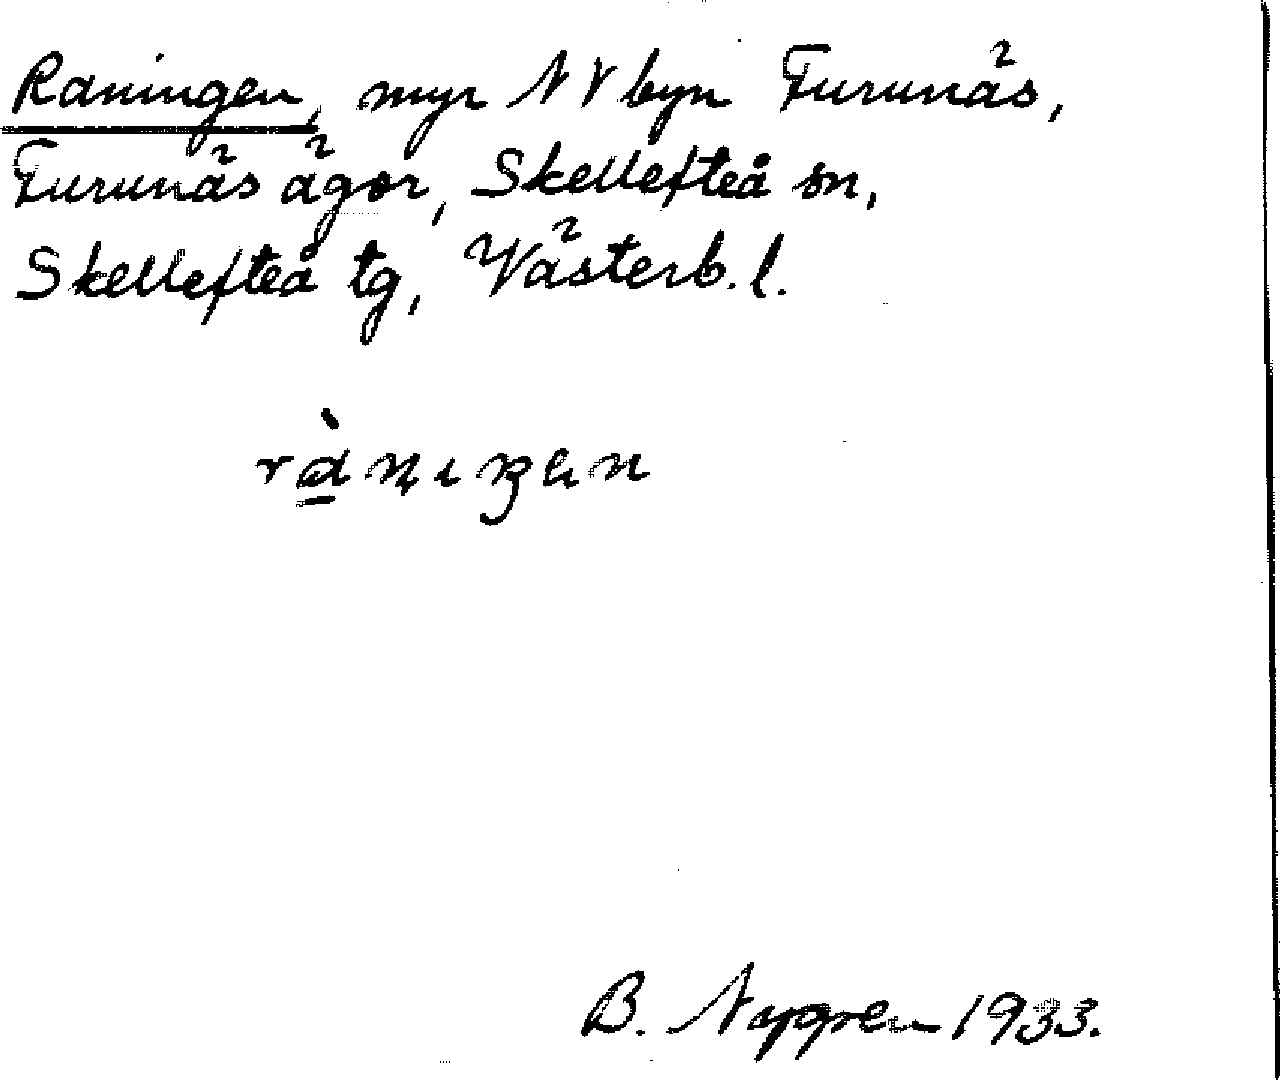 Raningen, myr NV byn Furunäs,
Furunäs ägor, Skellefteå sn,
Skellefteå tg, Västerb. l.
B. Nygren 1933.